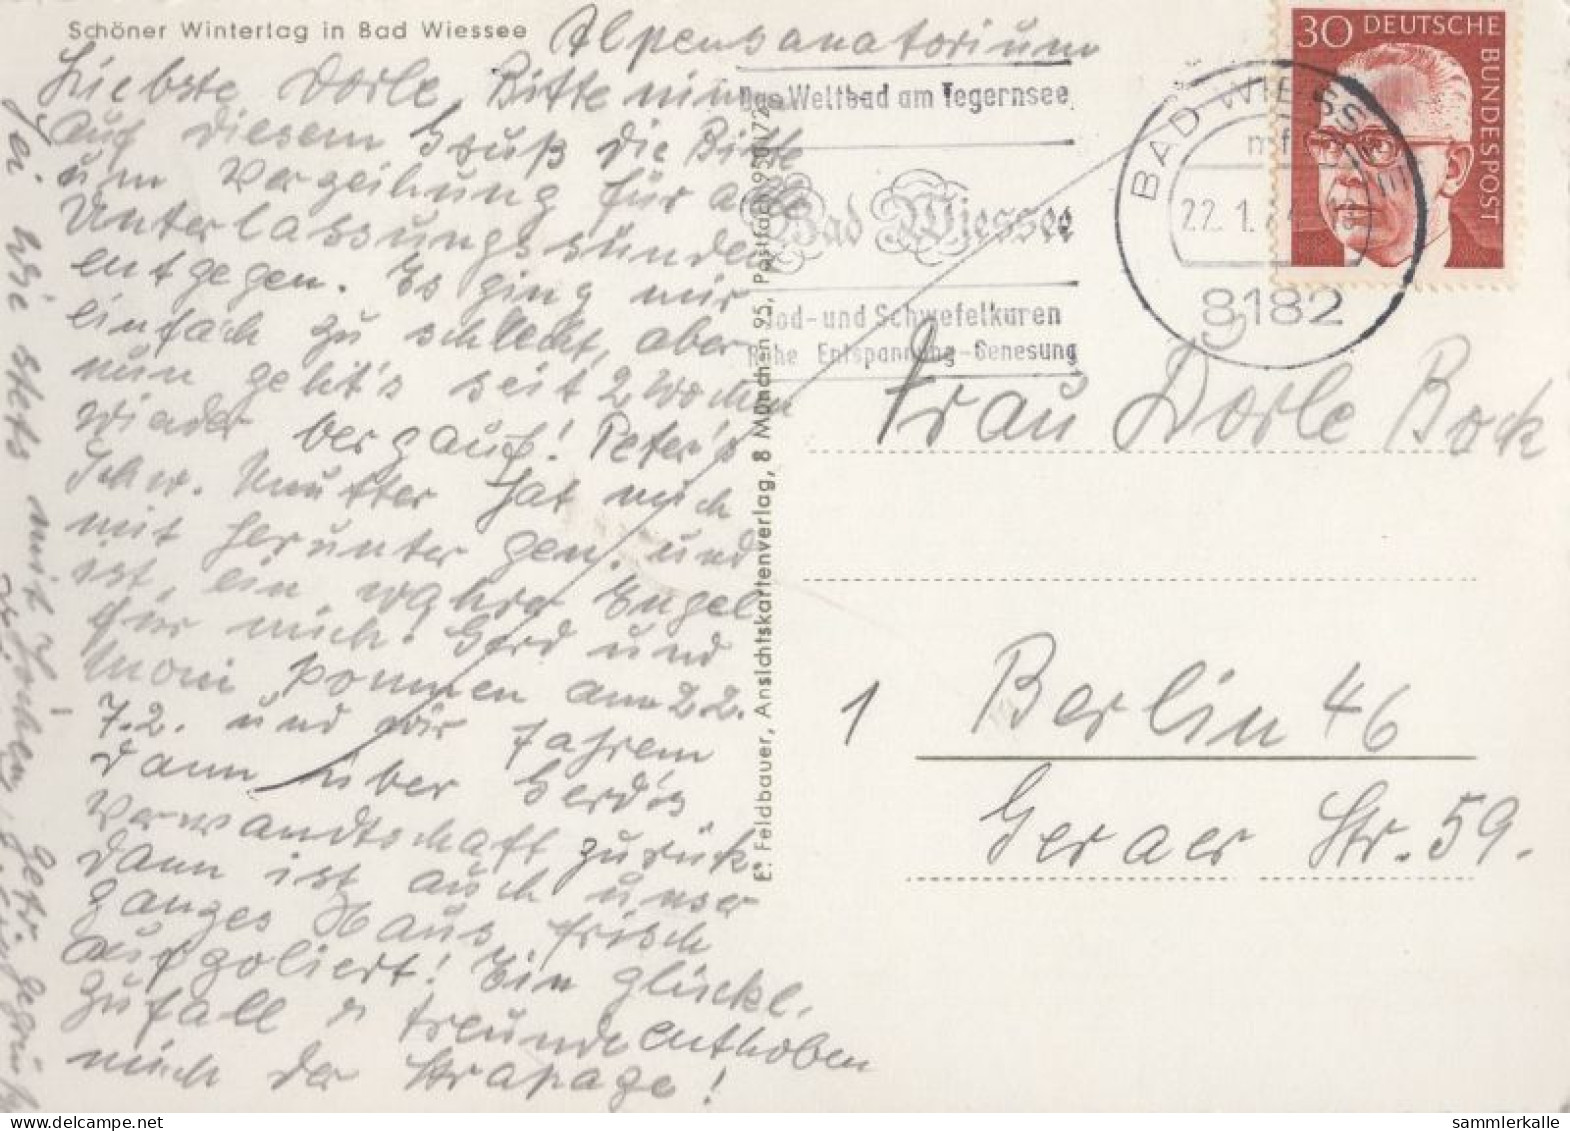 Schöner Wintertag in Bad Wiessee
Alpensanatorium
Liebste Dorle, Bitte nimm
auf diesem Gruß die Bitte
um Vergeihung für alle
Unterlassungssünden
entgegen. Es ging mir
einfach zu schlecht, aber
nun geht's seit 2 Wochen
wieder bergauf! Peter's
Schw. Mutter hat mich
mit herunter gen. und
ist ein wahrer Engel
für mich. Gerd und
Moni kommen am 2.2.
7.2. und wir fahren
dann über Gerd's
Verwandtschaft zurück
dann ist auch unser
ganzes Haus frisch
aufpoliert! Ein glückl.
Zufall & Freunde enthoben
mich der Strapaze!
Sei wie stets mit Jochen gegrüßt
E. Feldbauer, Ansichtskartenverlag, 8 München 95, Postfach 950172
Das Weltbad am Tegernsee
Bad Wiessee
Jod- und Schwefelkuren
Ruhe Entspannung-Genesung
BAD WIESSEE
22.1.
8182
30 DEUTSCHE
BUNDESPOST
Frau Dorle Bock
1 Berlin 46
Geraer Str. 59.
sammlerkalle